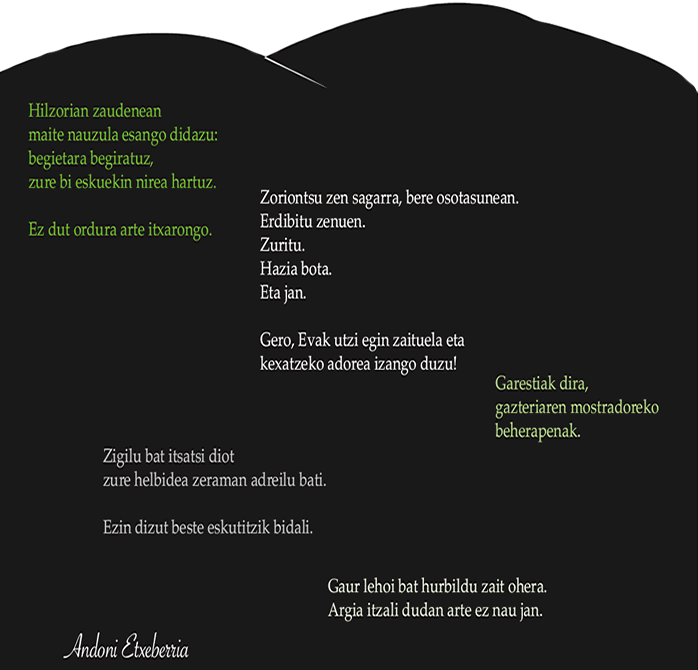 Hilzorian zaudenean
maite nauzula esango didazu:
begietara begiratuz,
zure bi eskuekin nirea hartuz.
Ez dut ordura arte itxarongo.
Zoriontsu zen sagarra, bere osotasunean.
Erdibitu zenuen.
Zuritu.
Hazia bota.
Eta jan.
Gero, Evak utzi egin zaituela eta
kexatzeko adorea izango duzu!
Garestiak dira,
gazteriaren mostradoreko
beherapenak.
Zigilu bat itsatsi diot
zure helbidea zeraman adreilu bati.
Ezin dizut beste eskutitzik bidali.
Gaur lehoi bat hurbildu zait ohera.
Argia itzali dudan arte ez nau jan.
Andoni Etxeberria